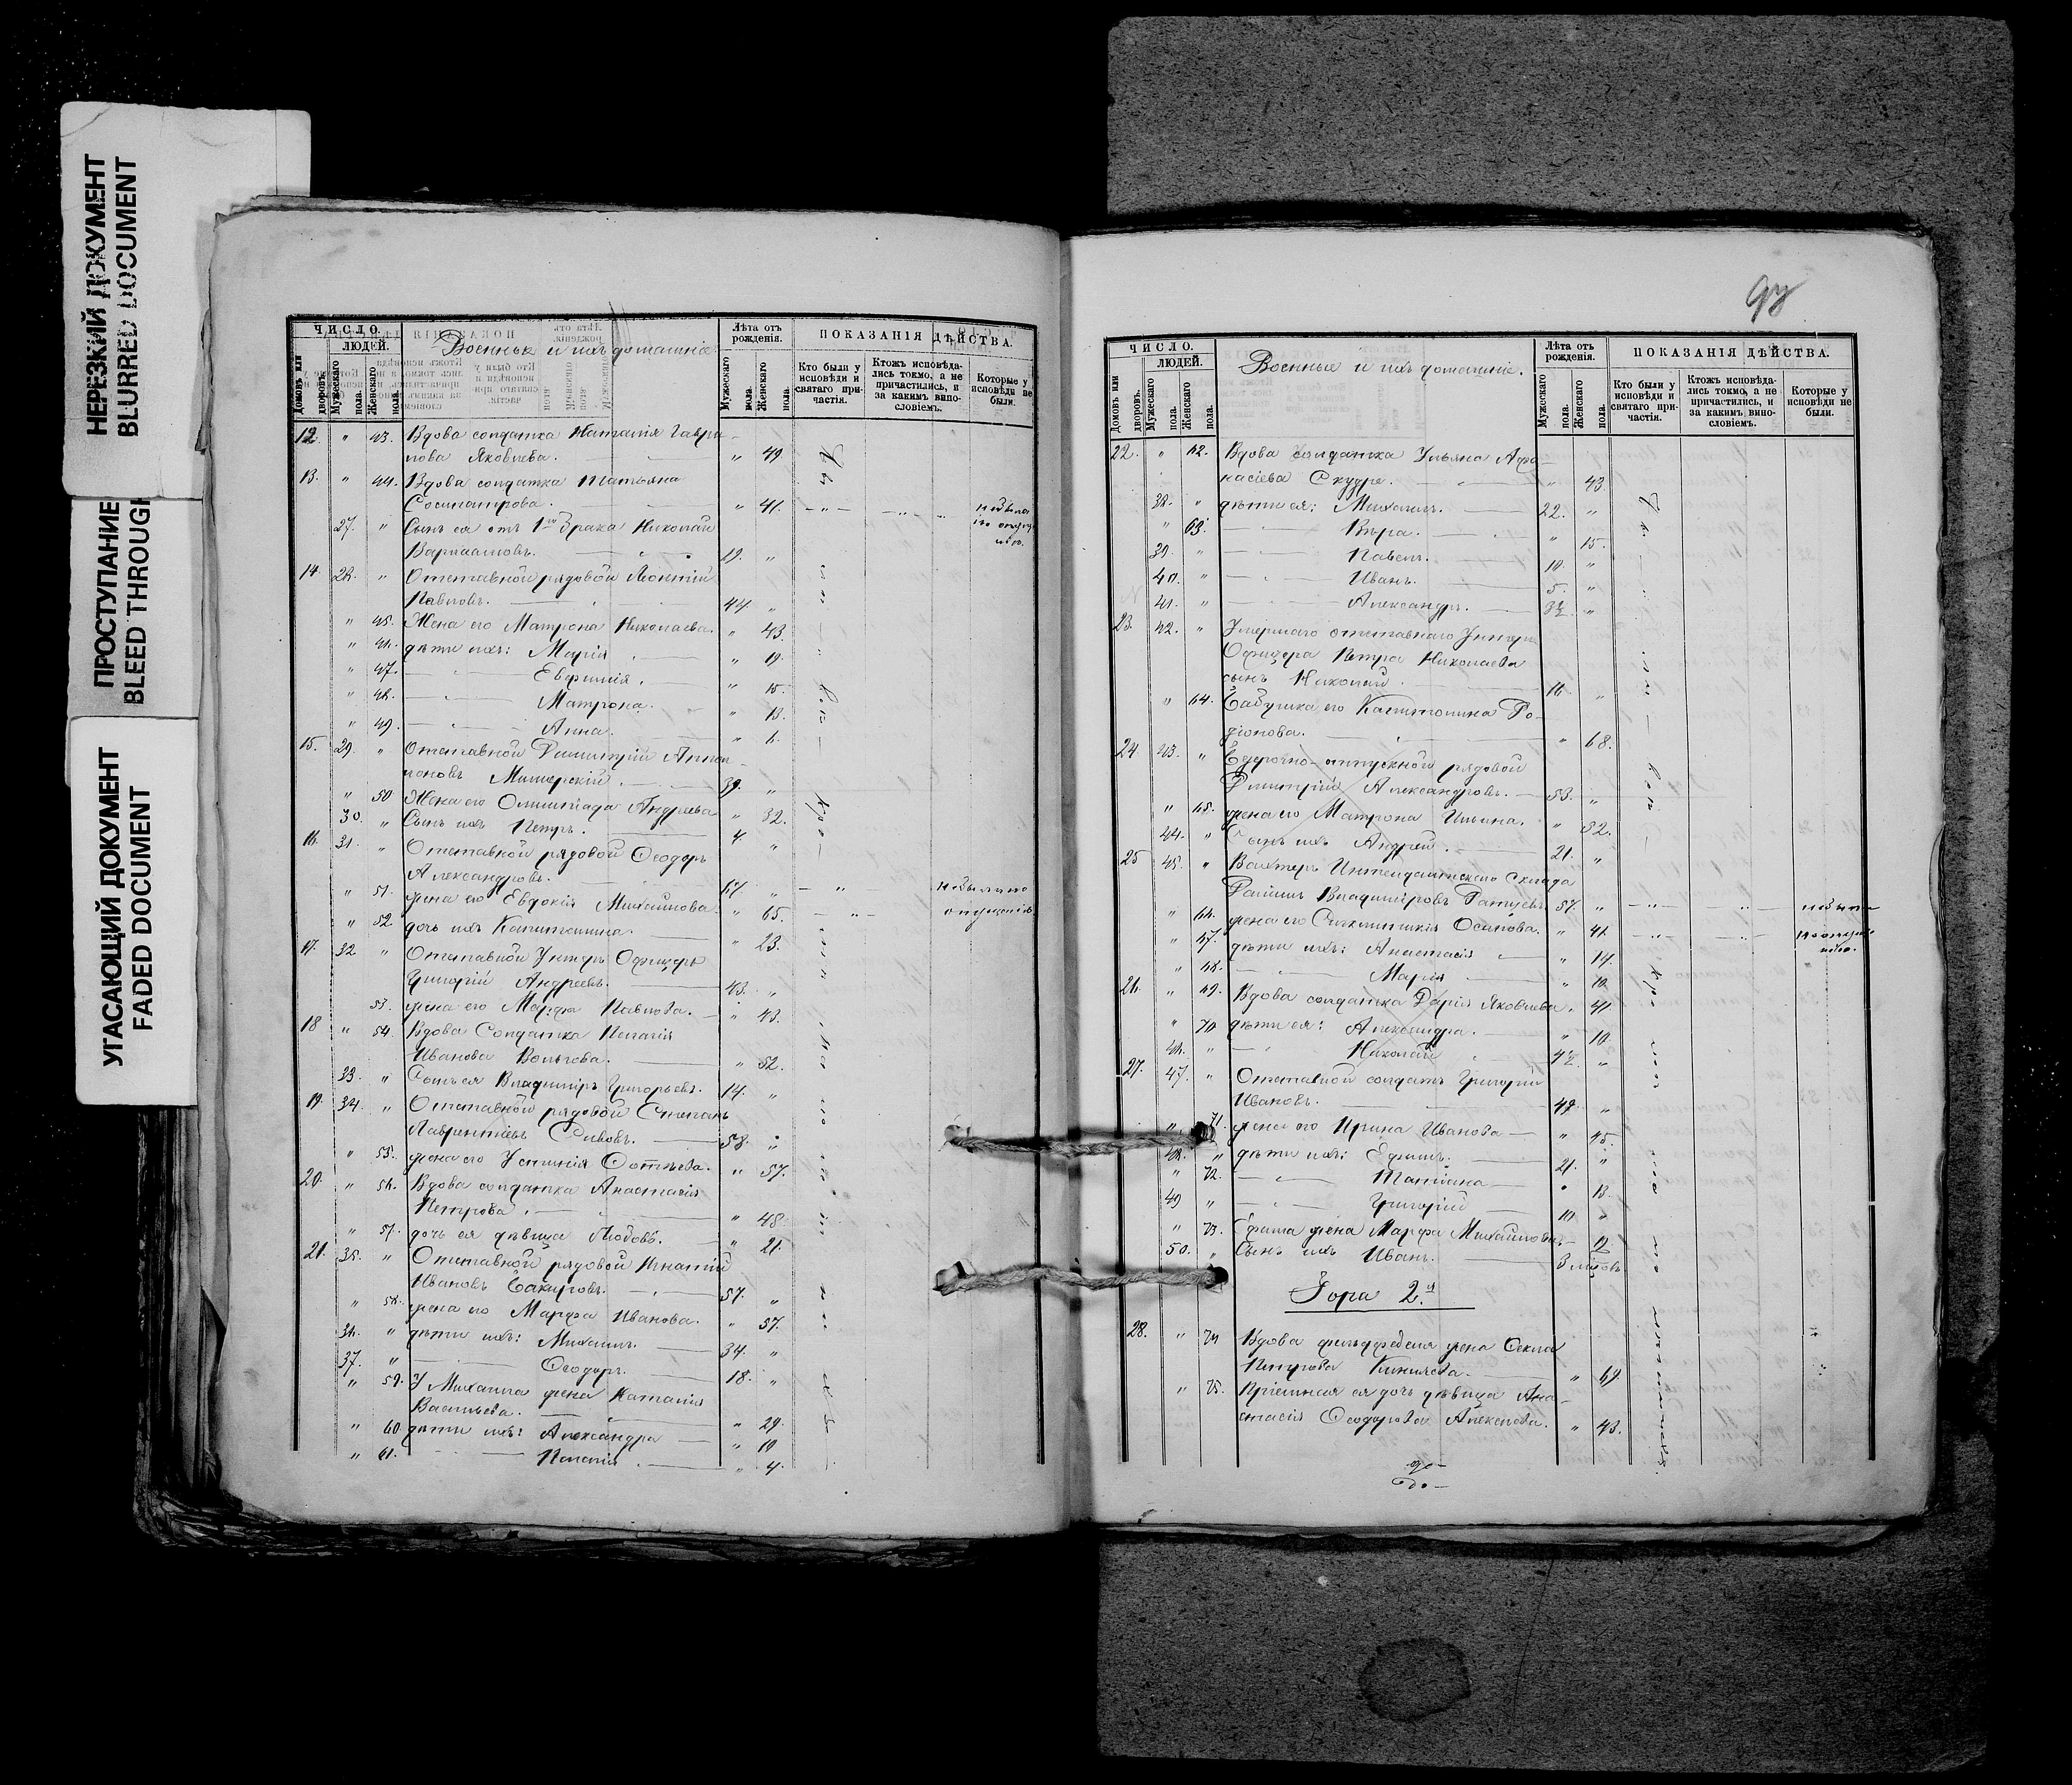 НЕРЕЗКИЙ ДОКУМЕНТ
BLURRED DOCUMENT
ПРОСТУПАНИЕ
BLEED THROUGH
УГАСАЮЩИЙ ДОКУМЕНТ
FADED DOCUMENT
ЧИСЛО.
ЛЮДЕЙ.
Домовъ или дворовъ.
Мужескаго пола.
Женскаго пола.
Военные и ихъ домашніе
Лѣта отъ рожденія.
Мужескаго пола.
Женскаго пола.
ПОКАЗАНІЯ ДѢЙСТВА.
Кто были у исповѣди и святаго причастія.
Ктожъ исповѣдались токмо, а не причастились, и за какимъ винословіемъ.
Которые у исповѣди не были.
12. " 43. Вдова солдатка Наталія Гаври
лова Яковлева. " 49.
13. " 44. Вдова солдатка Татьяна
Сосипатрова. " 41.
27. " Сынъ ея отъ 1го брака Николай
Варлаамовъ. 12. "
14. 28. " Отставной рядовой Леонтій
Павловъ. 44. "
" 45. Жена его Матрона Николаева. " 43.
" 46. дѣти ихъ: Марія " 19.
" 47. Евфимія. " 15.
" 48. Матрона. " 13.
" 49. Анна. " 6.
15. 29. " Отставной Димитрій
39. "
" 50 Жена его Олимпіада Андреева " 32.
30. " Сынъ ихъ Петръ. 4. "
16. 31. " Отставной рядовой Ѳеодоръ
Александровъ. 67. "
" 51. жена его Евдокія Михайлова. " 65.
" 52 дочь ихъ Капитолина. " 23.
17. 32 " Отставной Унтеръ Офицеръ
Григорій Андреевъ. 43. "
53. жена его Марфа Павлова. " 43.
18 " 54. Вдова Солдатка Пелагія
Иванова Волкова. " 52.
33. " Сынъ ея Владиміръ Григорьевъ. 14. "
19. 34. " Отставной рядовой Степанъ
Лаврентіевъ 58. "
" 55. жена его " 57.
20. " 56. Вдова солдатка Анастасія
Петрова. " 48.
" 57. дочь ея дѣвица Любовь. " 21.
21. 35. " Отставной рядовой Игнатій
Ивановъ 57. "
" 58. жена его Марфа Иванова. " 57.
36. " дѣти ихъ: Михаилъ. 34. "
37. " Ѳеодоръ. 18. "
" 59. У Михаила жена Наталія
Васильева. " 29.
" 60. дѣти ихъ: Александра " 10
" 61. Пелагія " 4.
ЧИСЛО.
ЛЮДЕЙ.
Домовъ или дворовъ.
Мужескаго пола.
Женскаго пола.
Военные и ихъ домашніе.
Лѣта отъ рожденія.
Мужескаго пола.
Женскаго пола.
ПОКАЗАНІЯ ДѢЙСТВА.
Кто были у исповѣди и святаго причастія.
Ктожъ исповѣдались токмо, а не причастились, и за какимъ винословіемъ.
Которые у исповѣди не были.
22. " 62. Вдова солдатка Ульяна Афа-
насіева " 43.
38. " дѣти ея: Михаилъ. 22. "
" 63. Вѣра. " 15.
39. " Павелъ. 10. "
40. " Иванъ. 5. "
41. " Александръ. 3½ "
23. 42. " Умершаго отставнаго Унтеръ
Офицера Петра Николаева
сынъ Николай. 16 "
" 64. Бабушка его Капитолина Ро-
діонова. " 68.
24 43. " Безсрочно-отпускной рядовой
Димитрій Александровъ. 53. "
" 65. жена его Матрона Ильина. " 52.
44. " Сынъ ихъ Андрей. 21. "
25 45. " Вахтеръ Интендантскаго склада
57. "
" 66. жена его Осипова. " 41
" 67. дѣти ихъ: Анастасія " 14.
" 68. Марія " 10.
26. " 69. Вдова солдатка Дарія Яковлева. " 41.
" 70 дѣти ея: Александра. " 10.
46. " Николай 4½ "
27. 47. " Отставной солдатъ Григорій
Ивановъ. 49. "
" 71. жена его Ирина Иванова " 45.
48. " дѣти ихъ: Ефимъ. 21. "
" 72. Татіана " 13.
49 " Григорій 10 "
" 73. Ефима жена Марфа
50. " Сынъ ихъ Иванъ.
Гора 2я
28. " 74 Вдова фельдфебеля жена Ѳекла
Петрова " 69
" 75. Пріемная ея дочь дѣвица Ана-
стасія Ѳеодорова Алексѣева. " 43.